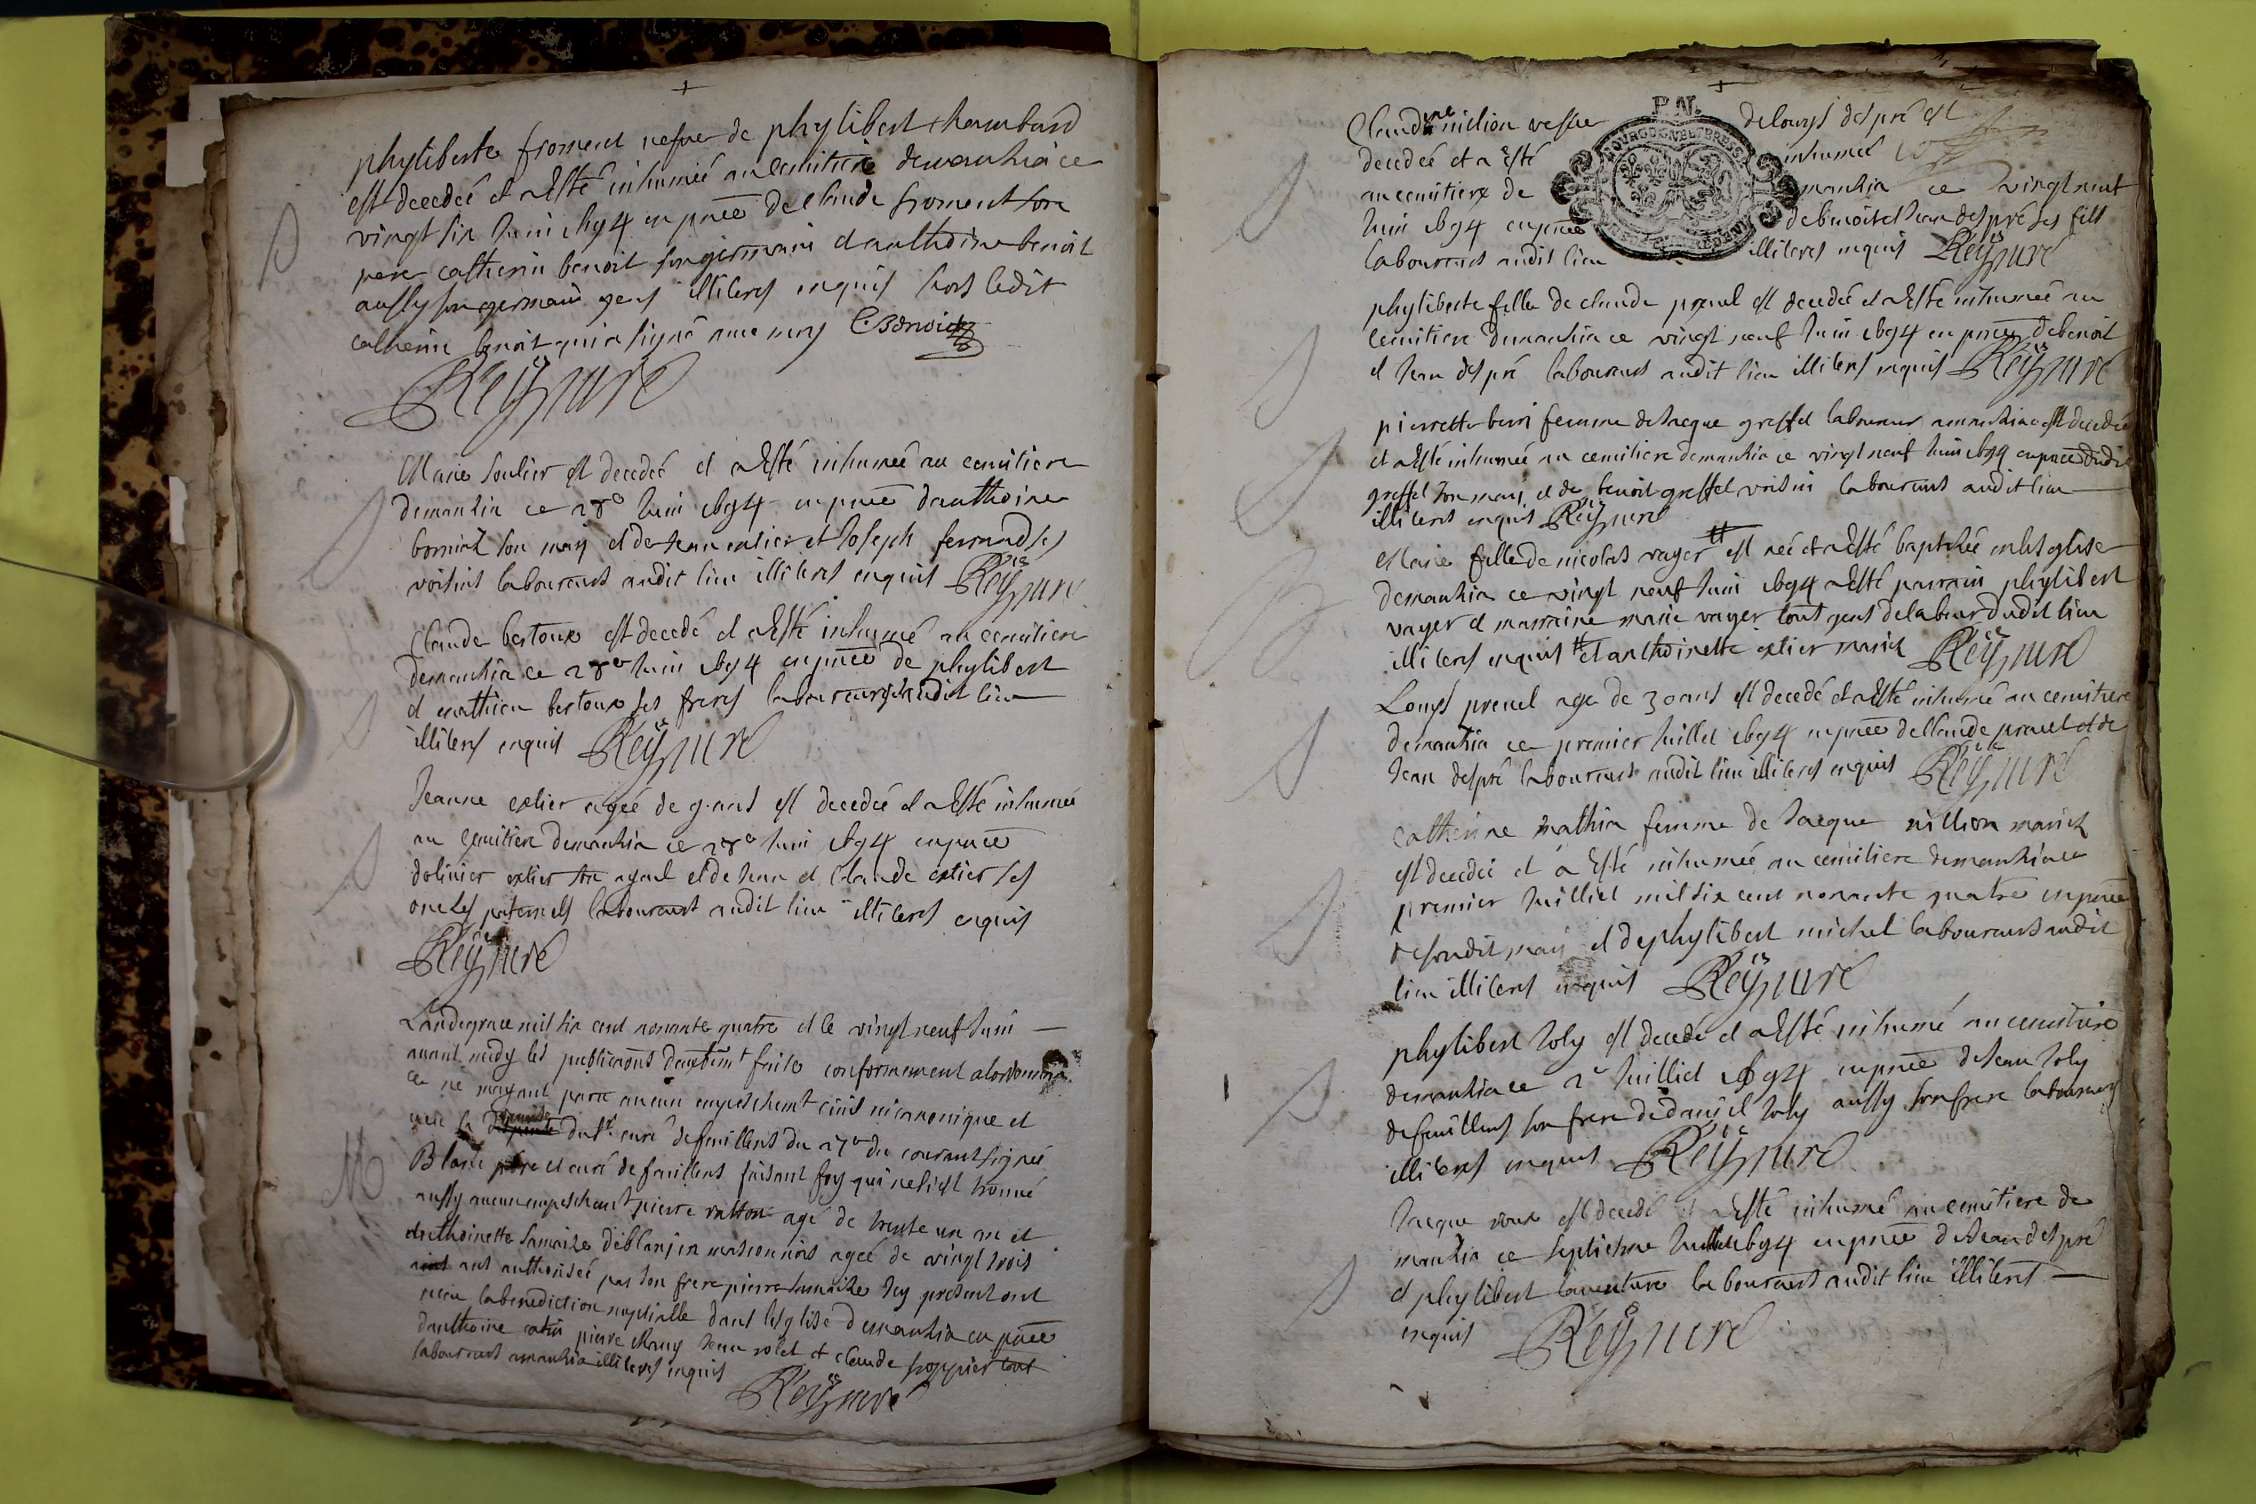 phyliberte froment vefue de phylibert chambard
est decedeé et a Esté inhumeé au cemitiere demanhia ce
vingt six Juin 1694 en pnce de claude froment son
pere catherin benoit son germain et anthoine benoit
aussy son germain gens illiteres enquis hors ledit
catherin benoit qui a signé auec moy C. Benoit
Reÿ curé
Marie soulier est decedeé et a Esté inhumeé au cemitiere
demanhia ce 28e Juin 1694 en pnce danthoine
son mary et de Jean catier et Joseph ferrand ses
voisins laboureurs audit lieu illiteres enquis Reÿ curé
Claude bertoux est decedé et a Esté inhumé au cemitiere
demanhia ce 28e Juin 1694 en pnce de phylibert
et mathieu bertoux ses freres laboureurs audit lieu
illiteres enquis Reÿ curé
Jeanne extier ageé de 9 ans est decedeé et a Esté inhumeé
au cemitiere demanhia ce 28e Juin 1694 en pnce
dolivier extier son ayeul et de Jean et Claude extier ses
oncles paternels laboureurs audit lieu illiteres enquis
Reÿ curé
Landegrace mil six cent nonante quatre et le vingt neuf Juin
auant midy les publications deuëmt faites conformement alordonnan
ce ne mayant paru aucun empeschemt ciuil ni canonique et
veu la du Sr curé defeuillens du 27e du courant signeé
Blanc ptre et curé de feuillens faisant foy quil ne sest trouué
aussy aucun empeschemt pierre ratton agé de trente un an et
Anthoinette Lamaize deblanjin masconnois ageé de vingt trois
ans authoriseé par son frere pierre Lamaize Icy present ont
receu la benediction nuptialle dans lesglise demanhia en pnce
danthoine catin pierre Many Jean volet et claude froppier tout
laboureurs amanhia illiteres enquis
Reÿ curé
Claudine nillion vefue de Louys despré est
decedeé et a esté inhumeé
au cemitiere de manhia ce vingt neuf
Juin 1694 en pnce de benoit et Jean despré ses fils
laboureurs audit lieu illiteres enquis Reÿ curé
P. N.
BOURGOGNE ET BRESSE
phyliberte fille de claude preuel est decedeé et a Esté inhumeé au
cemitiere demanhia ce vingt neuf Juin 1694 en pnce de benoit
et Jean despré laboureurs audit lieu illiteres enquis Reÿ curé
pierrette femme de Jacque greffet laboureur amanhia est decedeé
et a Esté inhumeé au cemitiere demanhia ce vingt neuf Juin 1694 en pnce dudit
greffet son mary et de benoit greffet voisin laboureurs audit lieu
illiteres enquis Reÿ curé
Marie fille de nicolas vayer # est neé et a Esté baptiseé en lesglise
demanhia ce vingt neuf Juin 1694 a Esté parrain phylibert
vayer et marraine marie vayer tout gens de labeur dudit lieu
illiteres enquis # et anthoinette extier mariez Reÿ curé
Louys preuel age de 30 ans est decedé et a Esté inhumé au cemitiere
demanhia ce premier Juillet 1694 en pnce de Claude preuel et de
Jean despré laboureurs audit lieu illiteres enquis Reÿ curé
catherine mathia femme de Jacque nillion mariez
est decedeé et a Esté inhumeé au cemitiere demanhia ce
premier Juilliet mil six cent nonante quatre en pnce
desondit mary et de phylibert michel laboureurs audit
lieu illiteres enquis Reÿ curé
phylibert Joly est decedé et a Esté inhumé au cemitiere
demanhia ce 2e Juilliet 1694 en pnce de Jean Joly
defeuillens son frere de daniel Joly aussy son frere laboureurs
illiteres enquis Reÿ curé
Jacque roux est decedé et a Esté inhumé au cemitiere de
manhia ce septiesme Juillet 1694 en pnce de Jean despré
et phylibert lauenture laboureurs audit lieu illiteres
enquis Reÿ curé